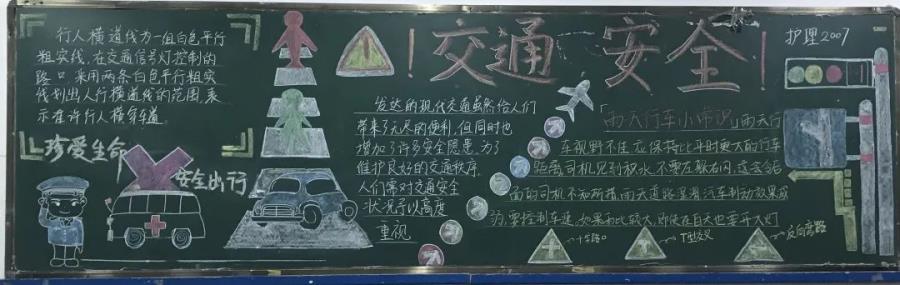 行人横道线为一组白色平行
粗实线,在交通信号灯控制的
路口,采用两条白色平行粗实
线划出人行横道线的范围,表
示准许行人横穿车道.
珍爱生命
安全出行
!交通 安全!
护理2007
发达的现代交通虽然给人们
带来了无尽的便利,但同时也
增加了许多安全隐患,为了
维护良好的交通秩序,
人们需对交通安全
状况予以高度
重视
「雨天行车小常识」雨天行
车视野不佳,应保持比平时更大的行车
距离,司机见到积水,不要左躲右闪,这会令后
面的司机不知所措,雨天道路湿滑汽车制动效果减
弱,要控制车速,如果雨比较大,即使在白天也要开大灯
十字路口
T型交叉
反向弯路